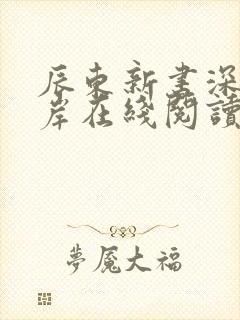 辰东新書深
岸在綫閱讀
夢魘大福